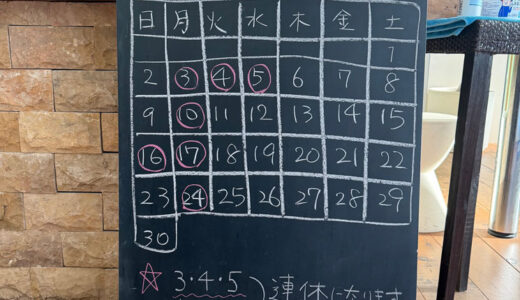 日 月 火 水 木 金 土
1
2 3 4 5 6 7 8
9 10 11 12 13 14 15
16 17 18 19 20 21 22
23 24 25 26 27 28 29
30
☆ 3・4・5 ) 連休になります